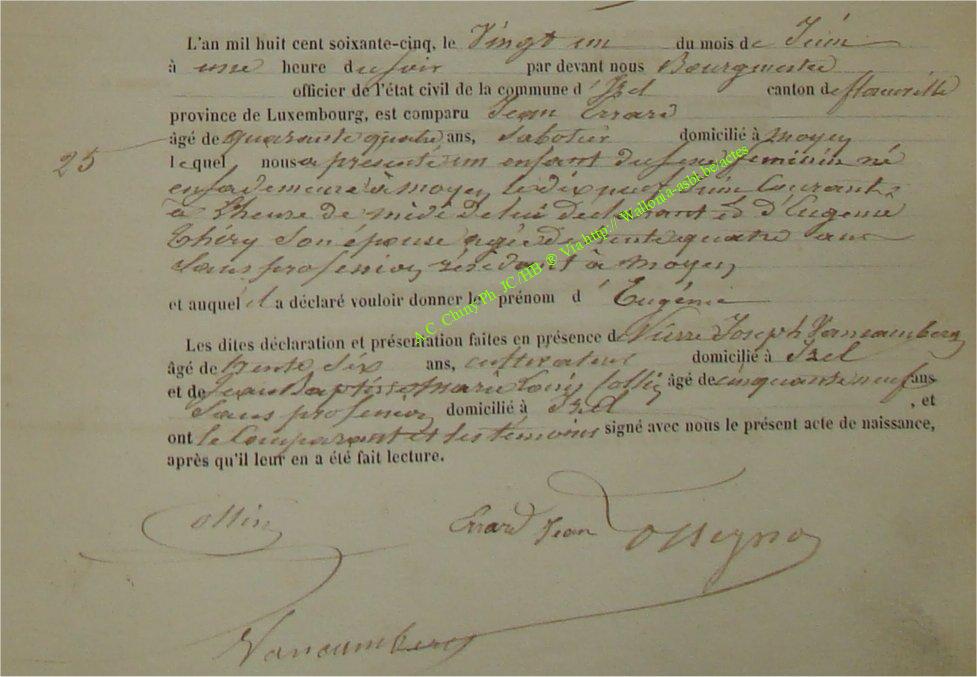 L'an mil huit cent soixante-cinq, le Vingt un du mois de Juin
à une heure du soir par devant nous Bourgmestre
officier de l'état civil de la commune d'Izel canton de florenville
province de Luxembourg, est comparu Jean Errard
âgé de quarante quatre ans, Sabotier domicilié à moyen
25
lequel nous a présenté un enfant du sexe feminin né
en sa demeure à moyen le dix neuf juin Courant
à l'heure de midi de lui déclarant et d'Eugenie
Théry Son epouse agée de trente quatre ans
Sans profession, résidant à moyen
et auquel il a déclaré vouloir donner le prénom d'Eugénie
Les dites déclaration et présentation faites en présence de Pierre Joseph Vancaumberg
âgé de trente Six ans, cultivateur domicilié à Izel
et de Jean Baptiste Marie Louis Collin âgé de cinquante neuf ans
Sans profession, domicilié à Izel , et
ont le Comparant et les temoins signé avec nous le présent acte de naissance,
après qu'il leur en a été fait lecture.
Collin Errard Jean
Vancaumberg
A.C. Chiny Ph JC /HB ® Via http:// Wallonia-asbl.be/actes